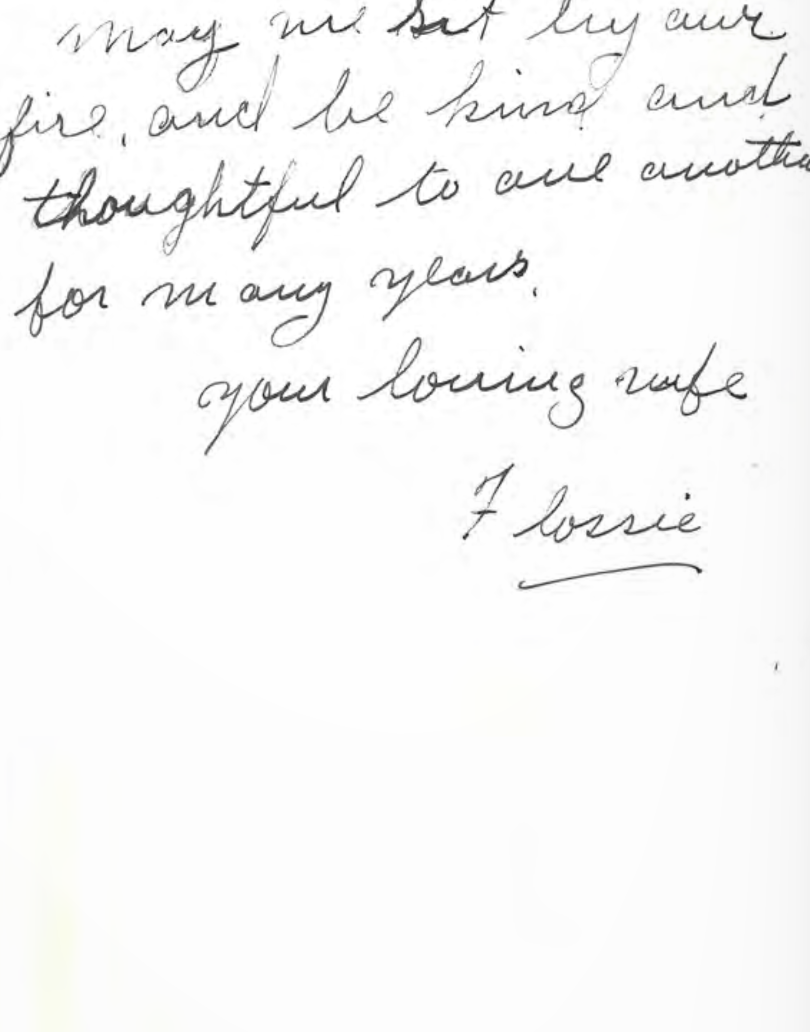 may we sit by our
fire, and be kind and
thoughtful to one another
for many years.
your loving wife
Flossie